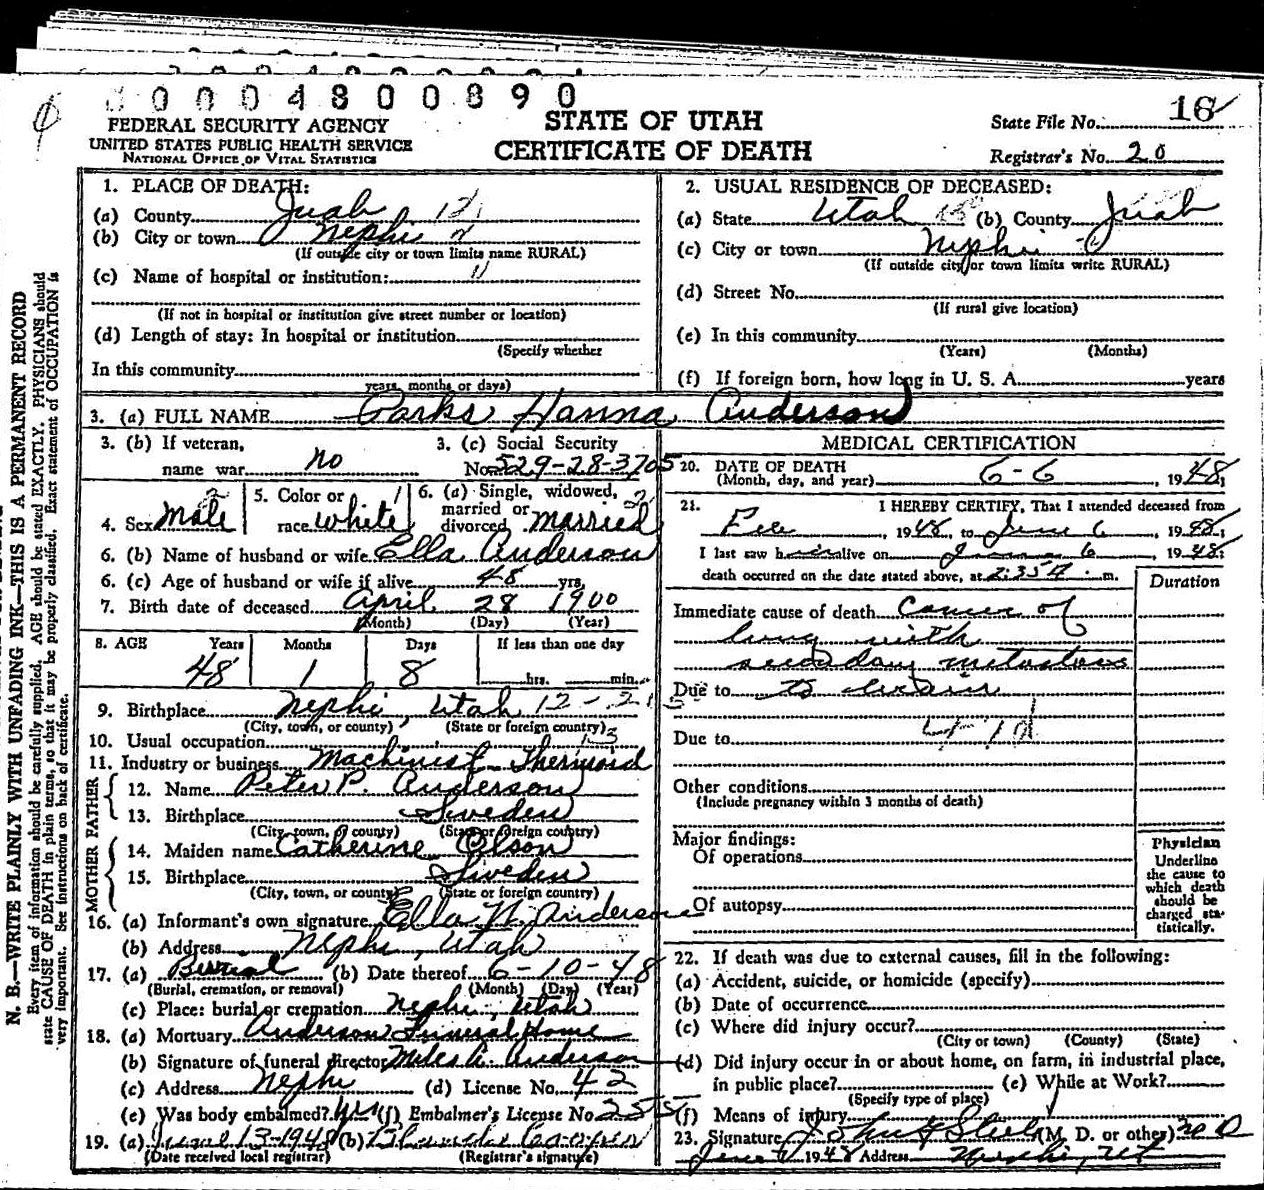 0 0 0 4 8 0 0 8 9 0
FEDERAL SECURITY AGENCY
UNITED STATES PUBLIC HEALTH SERVICE
NATIONAL OFFICE OF VITAL STATISTICS
STATE OF UTAH
CERTIFICATE OF DEATH
State File No. 16
Registrar's No. 20
N. B.—WRITE PLAINLY WITH UNFADING INK—THIS IS A PERMANENT RECORD
Every item of information should be carefully supplied. AGE should be stated EXACTLY. PHYSICIANS should
state CAUSE OF DEATH in plain terms, so that it may be properly classified. Exact statement of OCCUPATION is
very important. See instructions on back of certificate.
1. PLACE OF DEATH:
(a) County Juab 12
(b) City or town Nephi
(If outside city or town limits name RURAL)
(c) Name of hospital or institution:
(If not in hospital or institution give street number or location)
(d) Length of stay: In hospital or institution
(Specify whether
In this community
years, months or days)
2. USUAL RESIDENCE OF DECEASED:
(a) State Utah (b) County Juab
(c) City or town Nephi
(If outside city or town limits write RURAL)
(d) Street No.
(If rural give location)
(e) In this community
(Years) (Months)
(f) If foreign born, how long in U. S. A. years
3. (a) FULL NAME Parks Hanna Anderson
3. (b) If veteran,
name war no
3. (c) Social Security
No. 529-28-3705
4. Sex Male
5. Color or
race white
6. (a) Single, widowed,
married or
divorced married
6. (b) Name of husband or wife Ella Anderson
6. (c) Age of husband or wife if alive 48 yrs.
7. Birth date of deceased April 28 1900
(Month) (Day) (Year)
8. AGE Years Months Days If less than one day
48 1 8 hrs. min.
9. Birthplace Nephi, Utah
(City, town, or county) (State or foreign country)
10. Usual occupation
11. Industry or business Machinist Thermoid
FATHER
12. Name Peter P. Anderson
13. Birthplace Sweden
(City, town, or county) (State or foreign country)
MOTHER
14. Maiden name Catherine Olson
15. Birthplace Sweden
(City, town, or county) (State or foreign country)
16. (a) Informant's own signature Ella N. Anderson
(b) Address Nephi, Utah
17. (a) Burial (b) Date thereof 6-10-48
(Burial, cremation, or removal) (Month) (Day) (Year)
(c) Place: burial or cremation Nephi, Utah
18. (a) Mortuary Anderson Funeral Home
(b) Signature of funeral director Miles A. Anderson
(c) Address Nephi (d) License No. 42
(e) Was body embalmed? yes (f) Embalmer's License No. 255
19. (a) June 13-1948 (b) Blanche Cooper
(Date received local registrar) (Registrar's signature)
MEDICAL CERTIFICATION
20. DATE OF DEATH
(Month, day, and year) 6-6, 1948
21. I HEREBY CERTIFY, That I attended deceased from
1948, to June 6, 1948
I last saw him alive on June 6, 1948;
death occurred on the date stated above, at 2:35 A. m.
Duration
Immediate cause of death Cancer of
lung with
secondary metastasis
Due to to brain
Due to
Other conditions
(Include pregnancy within 3 months of death)
Major findings:
Of operations
Of autopsy
Physician
Underline
the cause to
which death
should be
charged sta-
tistically.
22. If death was due to external causes, fill in the following:
(a) Accident, suicide, or homicide (specify)
(b) Date of occurrence
(c) Where did injury occur?
(City or town) (County) (State)
(d) Did injury occur in or about home, on farm, in industrial place,
in public place? (e) While at Work?
(Specify type of place)
(f) Means of injury
23. Signature (M. D. or other) M D
June 1948 Address Nephi, Ut